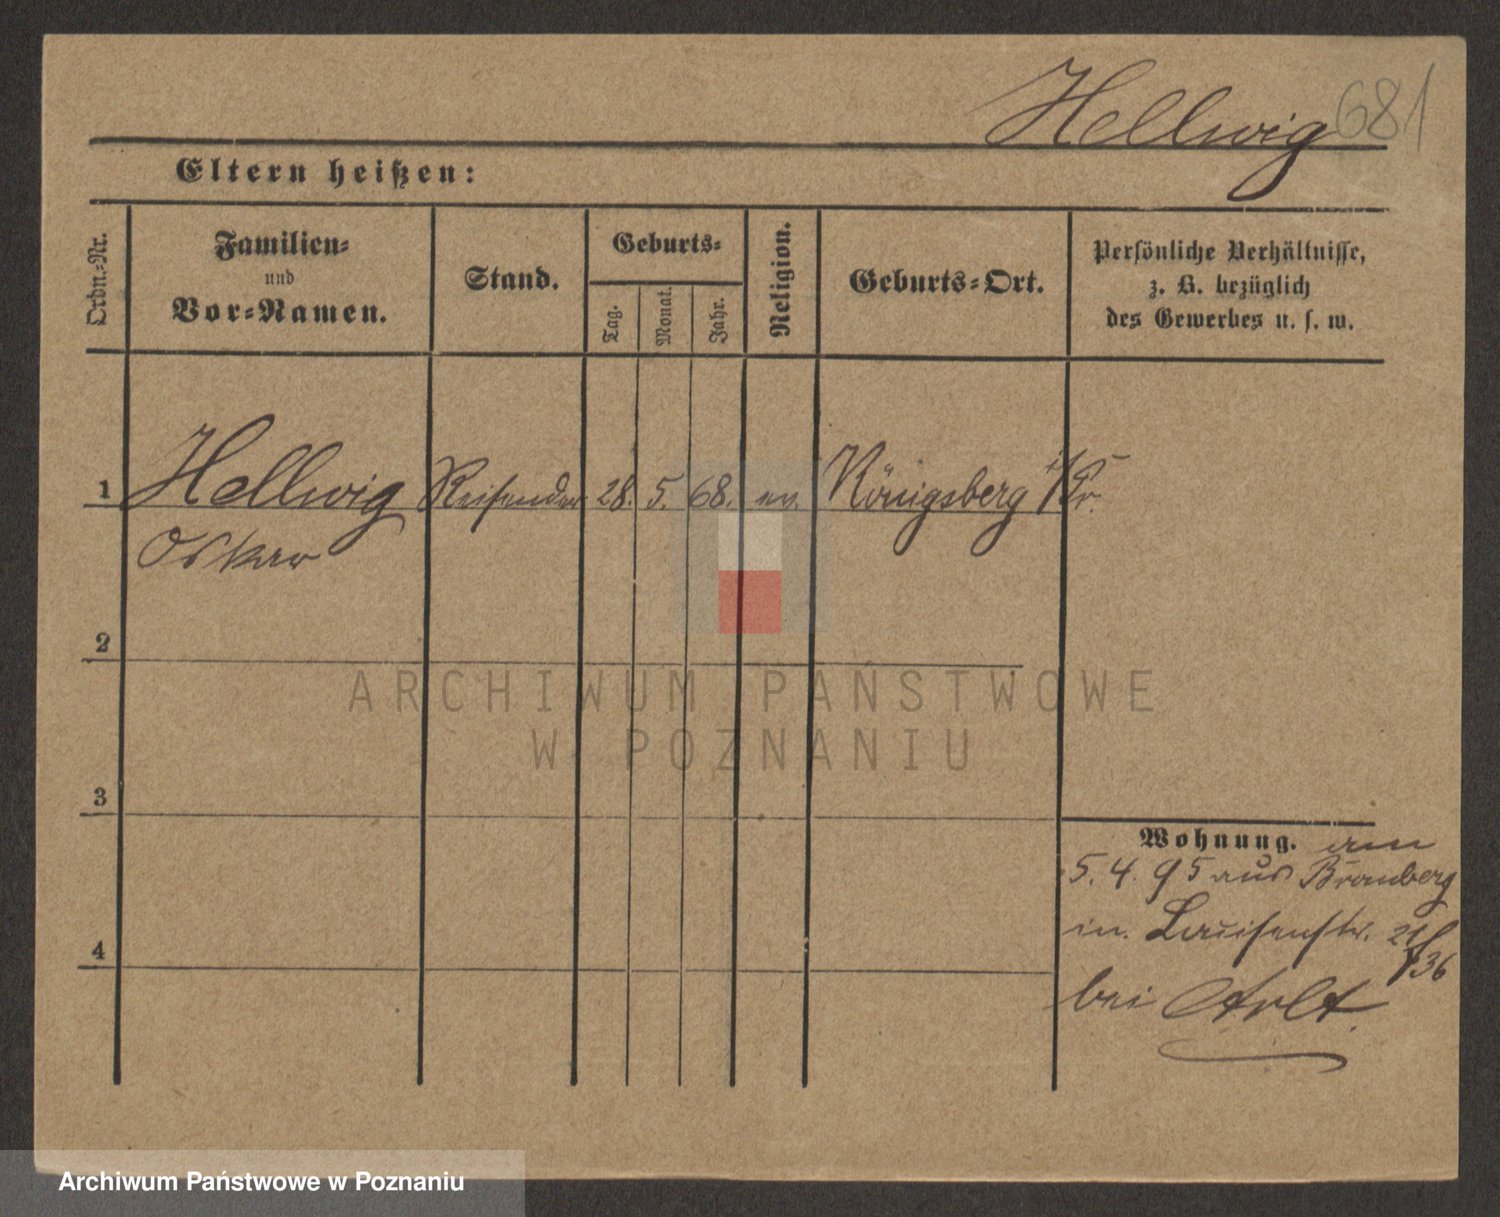 Hellwig 681
Eltern heißen:
Ordn.-Nr.
Familien-
und
Vor-Namen.
Stand.
Geburts-
Tag.
Monat.
Jahr.
Religion.
Geburts-Ort.
Persönliche Verhältnisse,
z. B. bezüglich
des Gewerbes u. s. w.
1 Hellwig Reisender 28. 5. 68. ev. Königsberg i/Pr.
Oskar
2
3
4
Wohnung. am
5. 4. 95 aus Bromberg
in Louisenstr. 21/36
bei Arlt.
ARCHIWUM PAŃSTWOWE
W POZNANIU
Archiwum Państwowe w Poznaniu